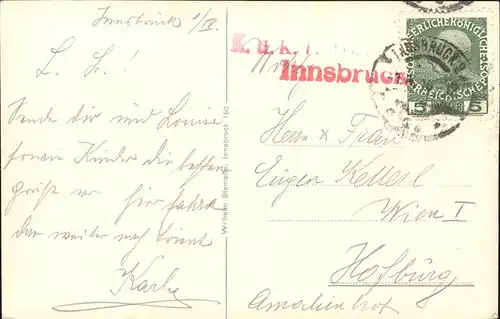 Innsbruck 1/IV.
L. K.!
Sende dir und Louise
sowie Kinder die besten
Grüße
hier fahre
dan weiter nach
Karl
Wilhelm Stempfle, Innsbruck 160
K. u. k.
Innsbruck
INNSBRUCK
KAISERLICHEKÖNIGLICHE
ÖSTERREICHISCHE POST
5 5
Herrn & Frau
Eugen Ketterl
Wien I
Hofburg
Amalienhof